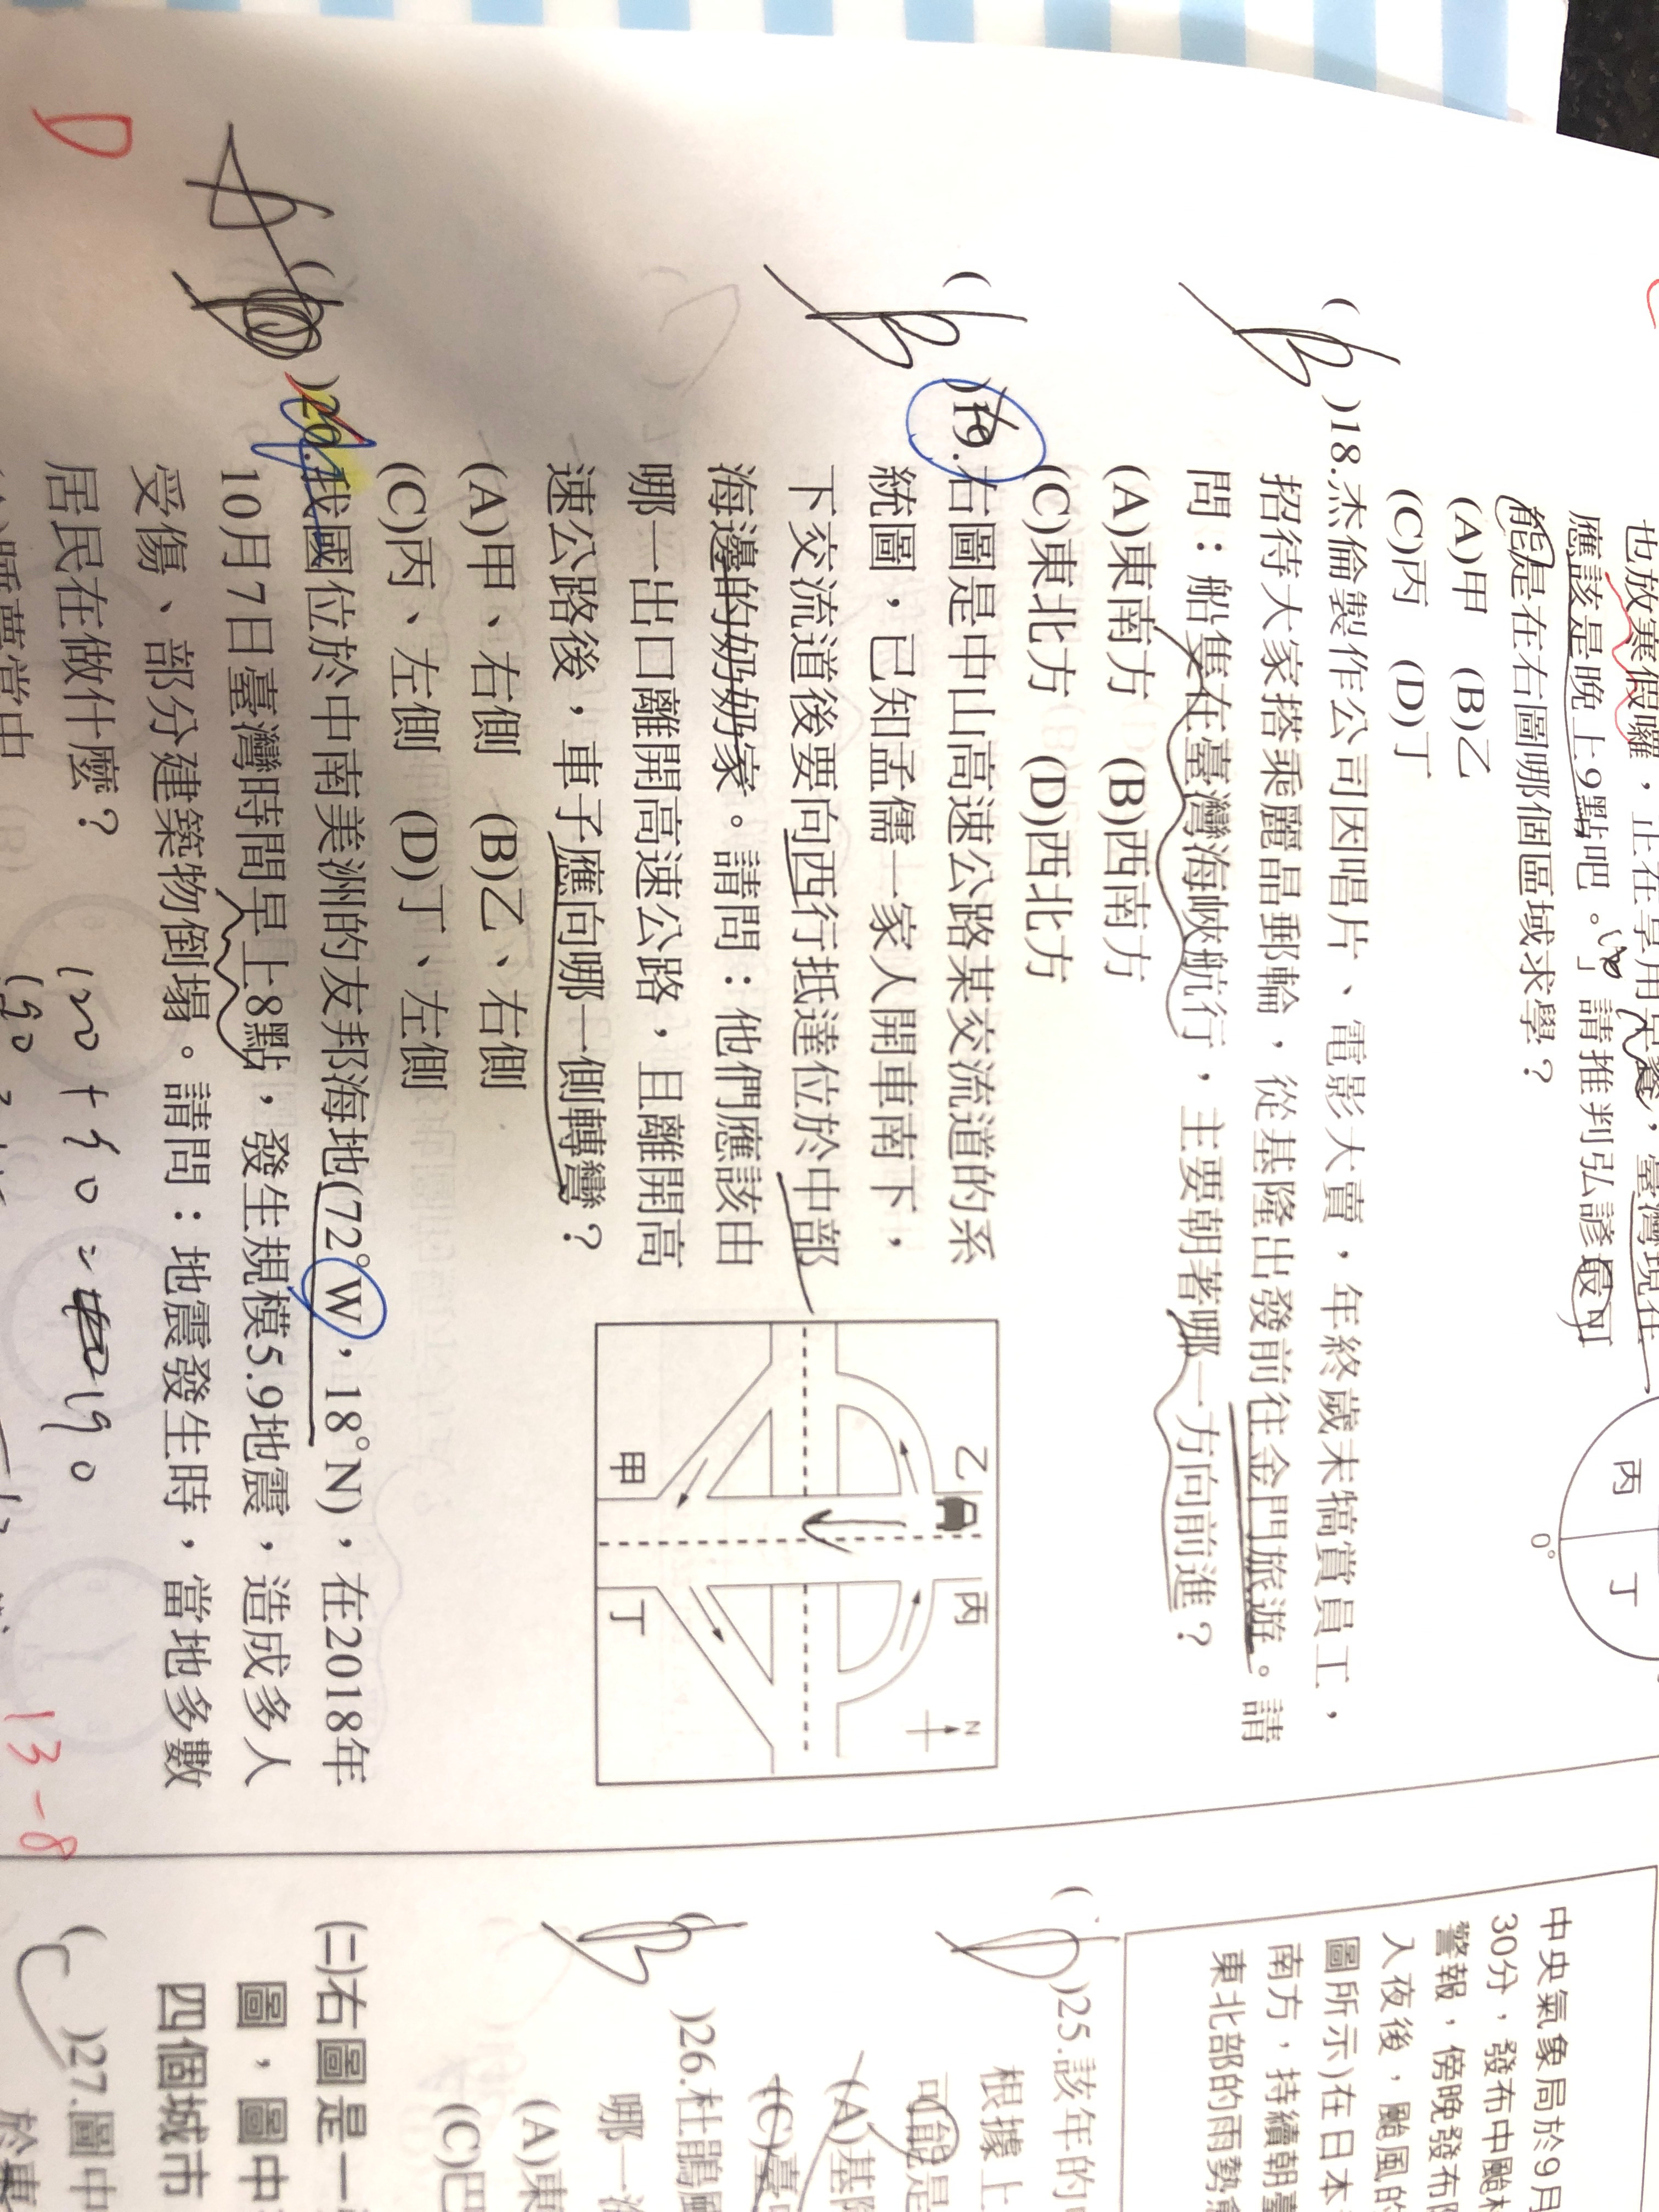 也放寒假囉，正在享用早餐，臺灣現在
應該是晚上9點吧。」請推判弘諺最可
能是在右圖哪個區域求學？
(A)甲 (B)乙
(C)丙 (D)丁
丙 丁
0°
( B )18.杰倫製作公司因唱片、電影大賣，年終歲末犒賞員工，
招待大家搭乘麗晶郵輪，從基隆出發前往金門旅遊。請
問：船隻在臺灣海峽航行，主要朝著哪一方向前進？
(A)東南方 (B)西南方
(C)東北方 (D)西北方
( B )19.右圖是中山高速公路某交流道的系
統圖，已知孟儒一家人開車南下，
下交流道後要向西行抵達位於中部
海邊的奶奶家。請問：他們應該由
哪一出口離開高速公路，且離開高
速公路後，車子應向哪一側轉彎？
(A)甲、右側 (B)乙、右側
(C)丙、左側 (D)丁、左側
乙 丙
N
甲 丁
)20.我國位於中南美洲的友邦海地(72°W，18°N)，在2018年
10月7日臺灣時間早上8點，發生規模5.9地震，造成多人
受傷、部分建築物倒塌。請問：地震發生時，當地多數
居民在做什麼？
D
120+90=
190
13-8
中央氣象局於9月
30分，發布中颱杜
警報，傍晚發布
入夜後，颱風的
圖所示)在日本
南方，持續朝臺
東北部的雨勢
( D )25.該年的
根據上
可能是
(A)基
(C)臺
( B )26.杜鵑颱
哪一
(A)東
(C)巴
(三)右圖是一
圖，圖中
四個城市
( C )27.圖中